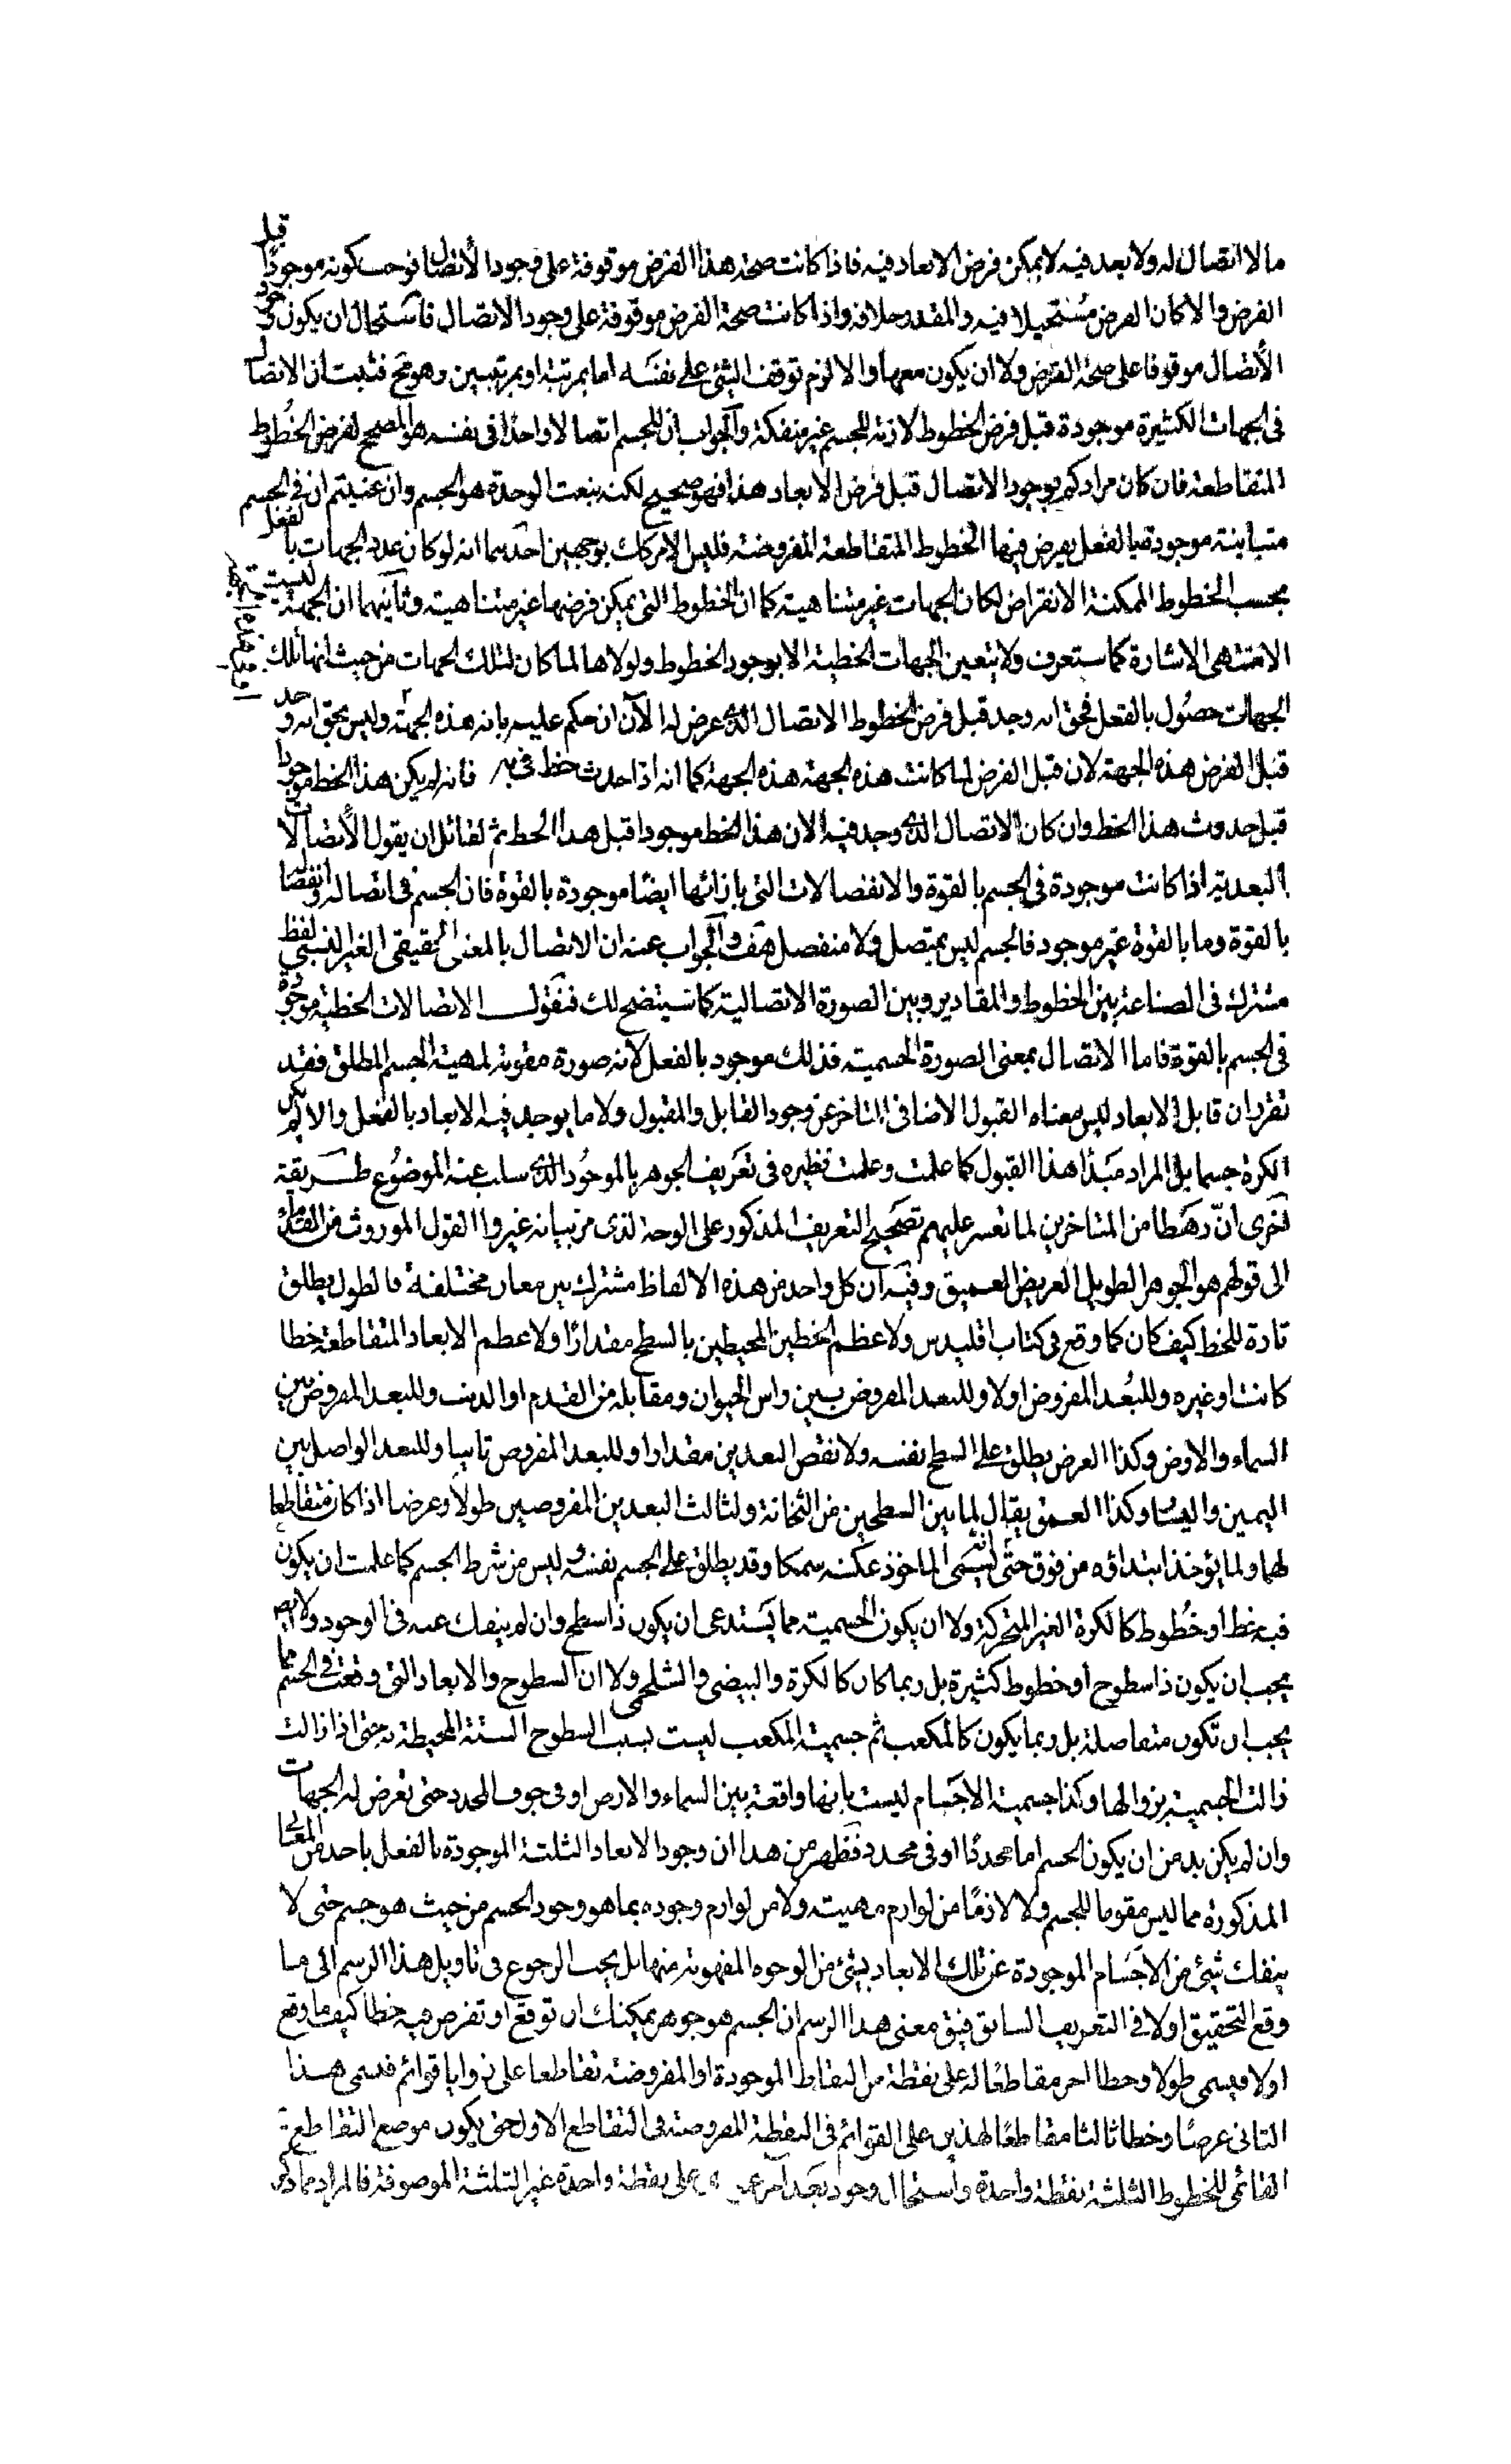 ما لا اتصال له ولا بعد فيه لا يمكن فرض الابعاد فيه فاذا كانت صحة هذا الفرض موقوفة على وجود الأتصال فوجب كونه موجودًا قبل
الفرض والا كان الفرض مُستحيلا فيه والمقدر خلافه واذا كانت صحة الفرض موقوفة على وجود الاتصال فاستحال ان يكون وجود
الأتصال موقوفا على صحة الفرض ولا ان يكون معها والا لزم توقف الشئ على نفسه اما بمرتبة او بمرتبتين وهو مح فثبت ان الاتصال
فى الجهات الكثيرة موجودة قبل فرض الخطوط لازمة للجسم غير منفكة والجواب ان للجسم اتصالا واحدًا فى نفسه هو المصحح لفرض الخُطوط
المتقاطعة فان كان مرادكم بوجود الاتصال قبل فرض الابعاد هذا فهو صحيح لكنه بنعت الوحدة هو الجسم وان عنيتم ان فى الجسم
متباينة موجودة بالفعل يفرض فيها الخطوط المتقاطعة المفروضة فليس الامر كك بوجهين احدهما انه لو كان عدد الجهات بالفعل
بحسب الخطوط الممكنة الانفراض لكان الجهات غير متناهية كما ان الخطوط التى يمكن فرضها غير متناهية وثانيهما ان الجهة ليست
الا منتهى الاشارة كما ستعرف ولا يتعين الجهات الخطية الا بوجود الخطوط ولولاها لما كان لتلك الجهات من حيث انها تلك
الجهات حصُول بالفعل فحق انه وجد قبل فرض الخطوط الاتصال الذى عرض له الآن ان حكم عليه بانه هذه الجهة وليس بحق انه وجد
قبل الفرض هذه الجهة لان قبل الفرض لما كانت هذه الجهة هذه الجهة كما انه اذا حدث خط فى فانه لم يكن هذا الخط موجودا
قبل حدوث هذا الخط وان كان الاتصال الذى وجد فيه الان هذا الخط موجودا قبل هذا الخط ثم لقائل ان يقول الأتصالات
البعدية اذا كانت موجودة فى الجسم بالقوة والانفصالات التى بازائها ايضًا موجودة بالقوة فان الجسم فى اتصاله وانفصاله
بالقوة وما بالقوة غير موجود فالجسم ليس بمتصل ولا منفصل هف والجواب عنه ان الاتصال بالمعنى الحقيقى الغير النسبى لفظ
مشترك فى الصناعة بين الخطوط والمقادير وبين الصورة الاتصالية كما سيتضح لك فنقول الاتصالات الخطية موجودة
فى الجسم بالقوة فاما الاتصال بمعنى الصورة الجسمية فذلك موجود بالفعل لانه صورة مقومة لمهية الجسم المطلق فقد
تقرر ان قابل الابعاد ليس معناه القبول الاضافى المتاخر عن وجود القابل والمقبول ولا ما يوجد فيه الابعاد بالفعل والا لم يكن
الكرة جسما بل المراد مَبدأ هذا القبول كما علمت وعلمت نظيره فى تعَريف الجوهر بالموجُود الذى سلب عنه الموضوُع طريقة
اخرى انّ رهَطا من المتاخرين لما تعسر عليهم تصَحيح التعريف المذكور على الوجه الذى مر بيانه غيروا القول الموروث من القدماء
الى قولهم هو الجوهر الطويل العريض العميق وفيه ان كل واحد من هذه الالفاظ مشترك بين معان مختلفة فالطول يطلق
تارة للخط كيف كان كما وقع فى كتاب اقليدس ولاعظم الخطين المحيطين بالسطح مقدارًا ولاعظم الابعاد المتقاطعة خطا
كانت او غيره وللبُعد المفروض اولا وللبعد المفروض بين راس الحيوان ومقابله من القدم او الذنب وللبعد المفروض بين
السماء والارض وكذا العرض يطلق على السطح نفسه ولانقص البعدين مقدارا وللبعد المفروض ثانيا وللبعد الواصل بين
اليمين واليسار وكذا العمق يقال لما بين السطحين من الثخانة ولثالث البعدين المفروضين طولا وعرضا اذا كان متقاطعا
لهما ولما يؤخذ ابتداؤه من فوق حتى انه ليسمى الماخوذ عكسه سمكا وقد يطلق على الجسم نفسه وليس من شرط الجسم كما علمت ان يكون
فيه خط او خُطوط كالكرة الغير المتحركة ولا ان يكون الجسمية مما يَستدعى ان يكون ذا سطح وان لم ينفك عنه فى الوجود ولا ايضا
يجب ان يكون ذا سطوح او خطوط كثيرة بل ربما كان كالكرة والبيضى والشلجمى ولا ان السطوح والابعاد التى وقعت فى الجسم مما
يجب ان تكون متفاصلة بل ربما يكون كالمكعب ثم جسمية المكعب ليست بسبب السطوح الستة المحيطة به حتى اذا زالت
زالت الجسمية بزوالها وكذا جسمية الاجَسام ليست بانها واقعة بين السماء والارض او فى جوف المحدد حتى تعرض له الجهات
وان لم يكن بد من ان يكون الجسم اما محددًا او فى محدد فظهر من هذا ان وجود الابعاد الثلثة الموجودة بالفعل باحد من المعانى
المذكورة مما ليس مقوما للجسم ولا لازمًا من لوازم مهيته ولا من لوازم وجوده بما هو وجود الجسم من حيث هو جسم حتى لا
ينفك شئ من الاجَسام الموجودة عن تلك الابعاد بشئ من الوجوه المفهومة منها بل يجب الرجوع فى تاويل هذا الرسم الى ما
وقع التحقيق اولا فى التعريف السابق فبقى معنى هذا الرسم ان الجسم هو جوهر يمكنك ان توقع او تفرض فيه خطا كيف ما وقع
اولا فيسمى طولا وخطا اخر مقاطعًا له على نقطة من النقاط الموجودة او المفروضة تقاطعا على زوايا قوائم فيسمى هذا
الثانى عرضًا وخطا ثالثا مقاطعًا لهذين على القوائم فى النقطة المفروضة فى التقاطع الاول حتى يكون موضع التقاطع
القائمى للخطوط الثلثة نقطة واحدة واستحال وجود بَعد آخر على نقطة واحدة غير الثلثة الموصوفة فالمراد مما ذكر